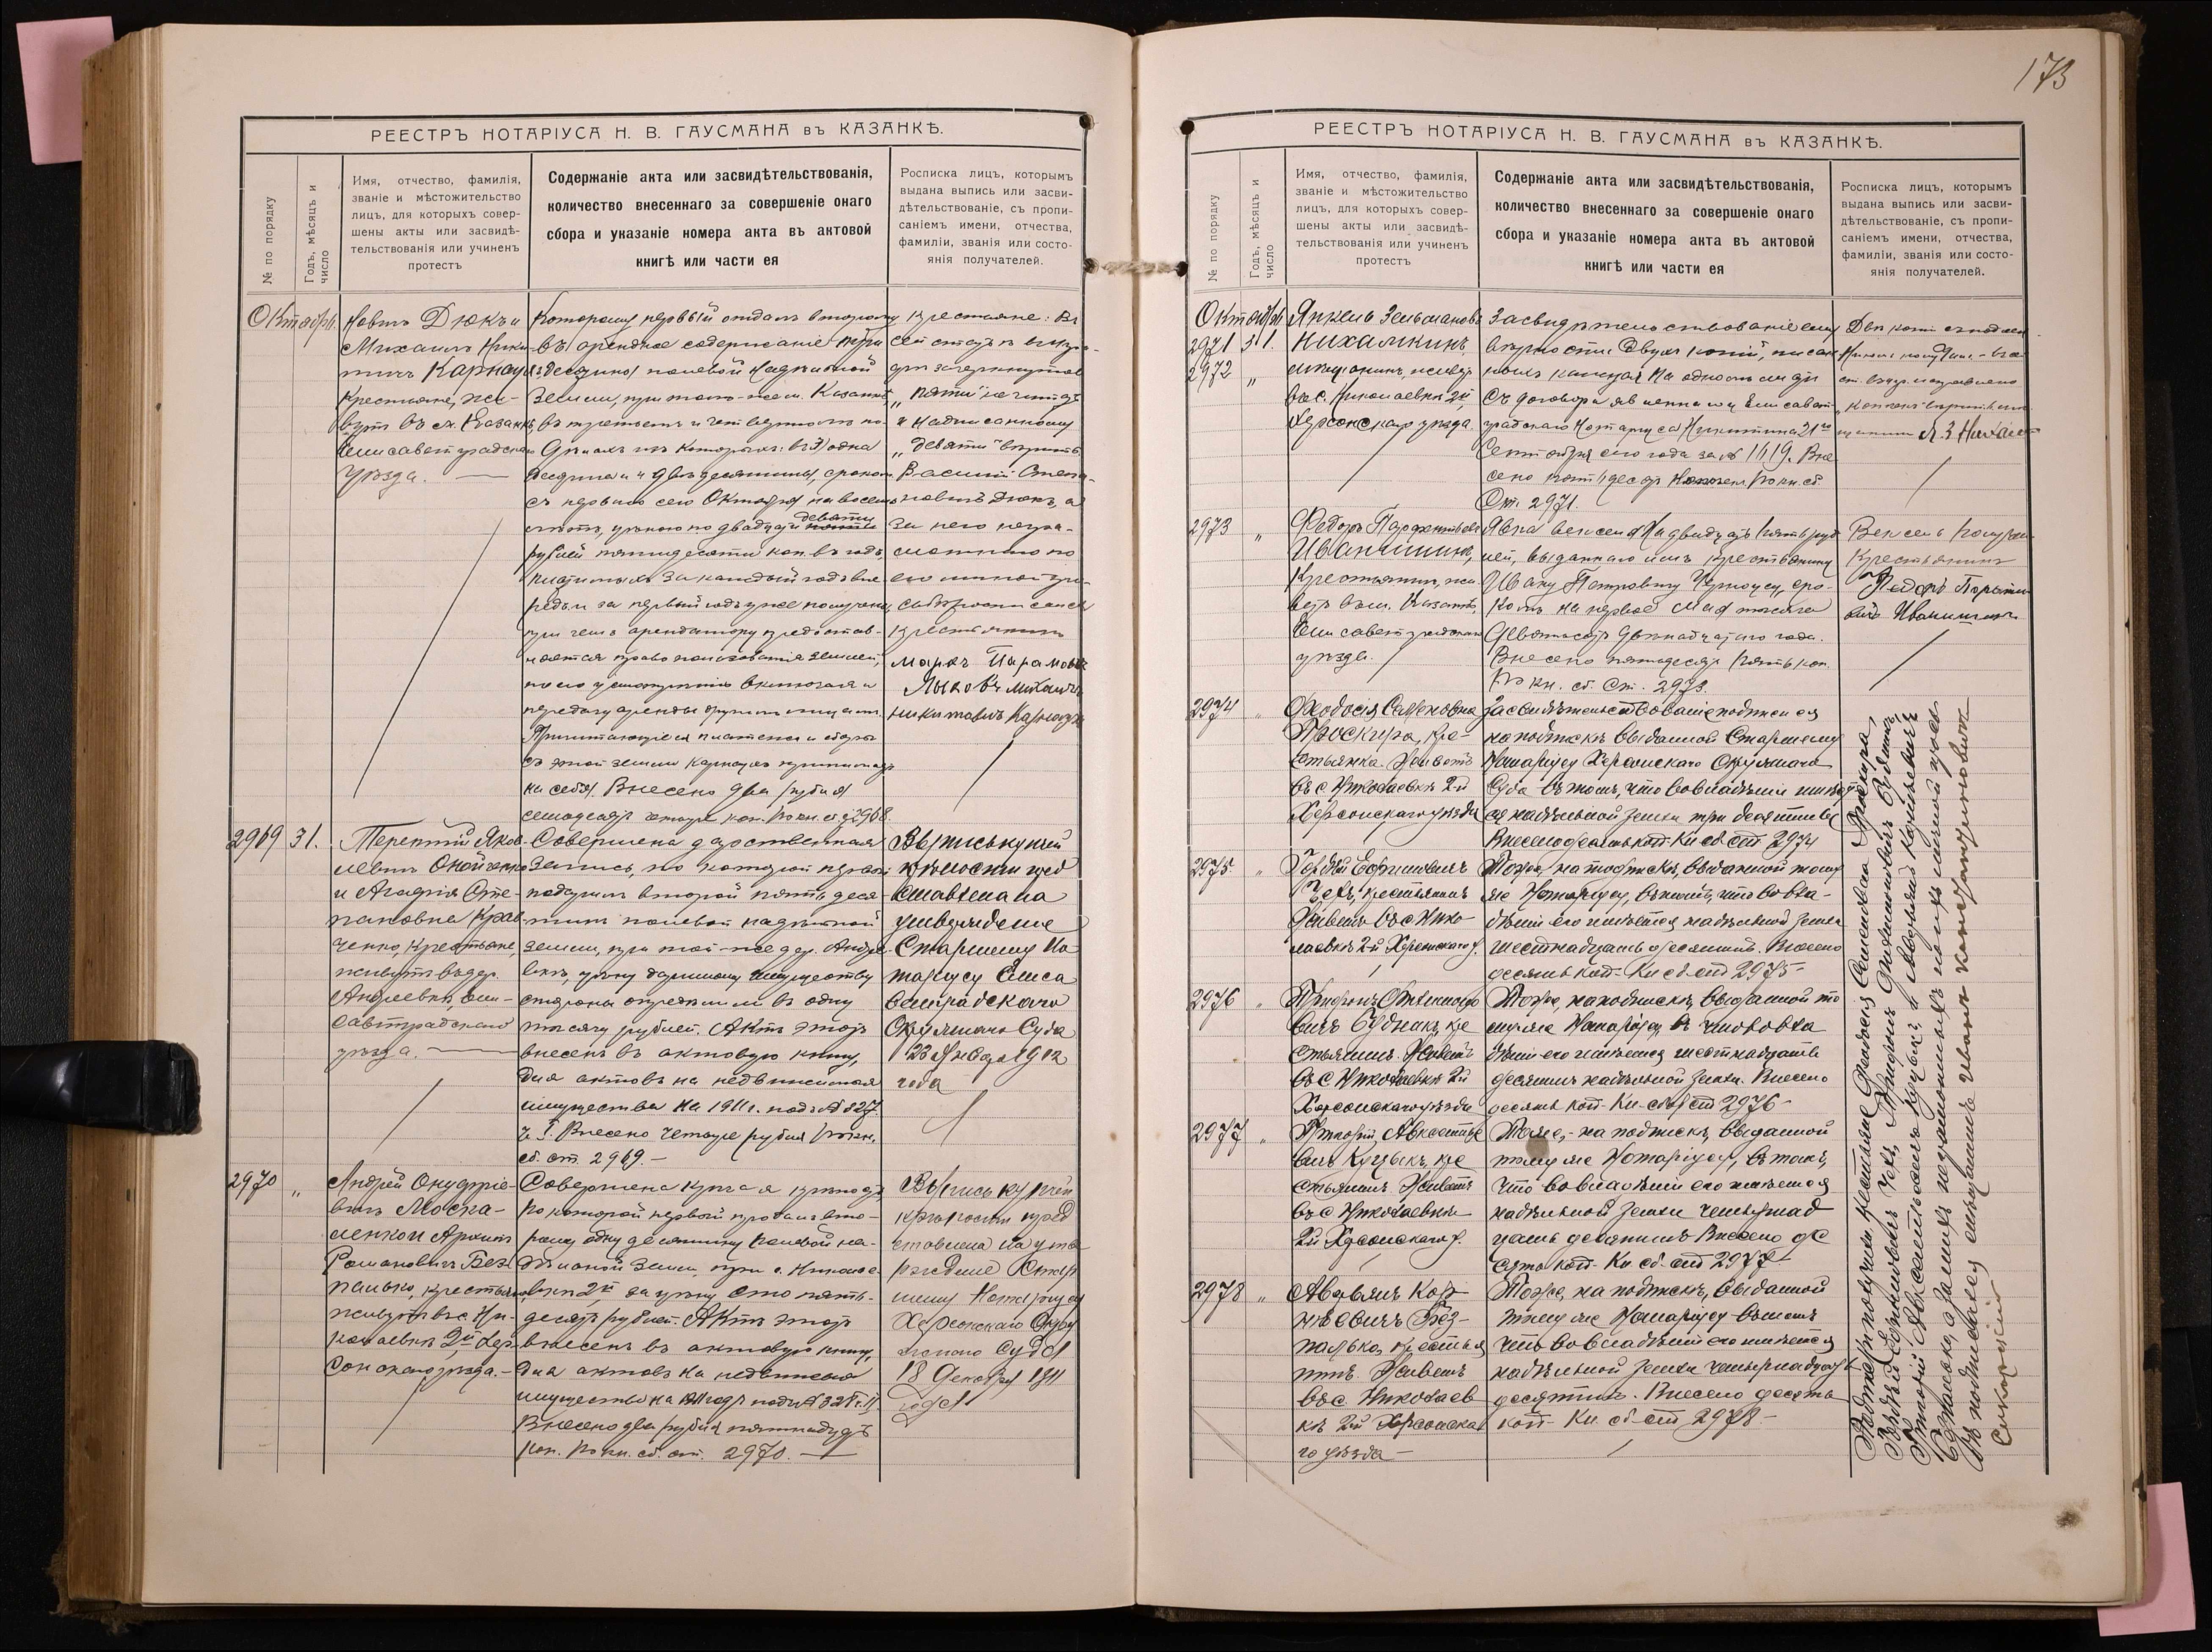 173
РЕЕСТРЪ НОТАРІУСА Н. В. ГАУСМАНА въ КАЗАНКѢ.
№ по порядку
Годъ, мѣсяцъ и
число
Имя, отчество, фамилія,
званіе и мѣстожительство
лицъ, для которыхъ совер-
шены акты или засвидѣ-
тельствованія или учиненъ
протестъ
Содержаніе акта или засвидѣтельствованія,
количество внесеннаго за совершеніе онаго
сбора и указаніе номера акта въ актовой
книгѣ или части ея
Росписка лицъ, которымъ
выдана выпись или засви-
дѣтельствованіе, съ пропи-
саніемъ имени, отчества,
фамиліи, званія или состо-
янія получателей.
Октябрь.
новичъ Дюкъ и
Михаилъ Ники-
тичъ Карнаухъ
крестьяне, жи-
вутъ въ м. Казанкѣ
Елисаветградскаго
уѣзда.
которому первый отдалъ второму
въ арендное содержаніе три
десятины полевой надѣльной
земли, при томъ-же м. Казанкѣ,
въ третьемъ и четвертомъ по-
десятина и двѣ десятины, срокомъ
съ перваго сего Октября на восемь
лѣтъ, цѣною по двадцати девяти
рублей пятидесяти коп. въ годъ,
платимыхъ за каждый годъ впе-
редъ и за первый годъ уже получены,
при чемъ арендатору предостав-
ляется право пользованія землей,
по его усмотрѣнію включая и
передачу аренды другимъ лицамъ.
Причитающіеся платежи и сборы
съ этой земли Карнаухъ принимаетъ
на себя. Внесено два рубля
семьдесятъ четыре коп. по кн. сб. ст. 2968.
крестьяне: Въ
сей статьѣ
зачеркнутое
„пяти" не читать
и надписанному
„девяти" вѣрить.
Василій Степа-
новичъ Дюкъ, а
за него негра-
мотнаго по
его личной прось-
бѣ росписался
крестьянинъ
Марко Парамов
Лысовъ Михаилъ
Никитовичъ Карнаухъ
2969
31.
Терентій Яков-
левичъ Онойченко
и Агафія Сте-
пановна Крав-
ченко, крестьяне,
живутъ въ дер.
Андреевкѣ, Ели-
саветградскаго
уѣзда.
Совершена дарственная
запись, по которой первый
подарилъ второй пять деся-
тинъ полевой надѣльной
земли, при той-же дер. Андре-
евкѣ, цѣну даримому имуществу
стороны опредѣлили въ одну
тысячу рублей. Актъ этотъ
внесенъ въ актовую книгу,
для актовъ на недвижимыя
имущества на 1911 г. подъ № 327.
ч. I. Внесено четыре рубля по кн.
сб. ст. 2969.
Выпись купчей
крѣпости пред
ставлена на
утвержденіе
Старшему Но
таріусу Елиса
ветградскаго
Окружнаго Суда
23 Января 1912
года
2970
„
Андрей Онуфріе-
вичъ Моска-
ленко и Архипъ
Романовичъ Без-
палько, крестьяне,
живутъ въ с. Ни-
колаевкѣ 2й, Хер-
сонскаго уѣзда.
Совершена купчая крѣпость,
по которой первый продалъ вто-
рому одну десятину полевой на-
дѣльной земли, при с. Николае-
вкѣ 2й за цѣну сто пять-
десятъ рублей. Актъ этотъ
внесенъ въ актовую книгу,
для актовъ на недвижимыя
имущества на 1911 годъ подъ № 328 ч. II.
Внесено два рубля пятнадцать
коп. по кн. сб. ст. 2970.
Выпись купчей
крѣпости пред
ставлена на утве
ржденіе Стар
шему Нотаріусу
Херсонскаго Окру
жнаго Суда
18 Декабря 1911
года
РЕЕСТРЪ НОТАРІУСА Н. В. ГАУСМАНА въ КАЗАНКѢ.
№ по порядку
Годъ, мѣсяцъ и
число
Имя, отчество, фамилія,
званіе и мѣстожительство
лицъ, для которыхъ совер-
шены акты или засвидѣ-
тельствованія или учиненъ
протестъ
Содержаніе акта или засвидѣтельствованія,
количество внесеннаго за совершеніе онаго
сбора и указаніе номера акта въ актовой
книгѣ или части ея
Росписка лицъ, которымъ
выдана выпись или засви-
дѣтельствованіе, съ пропи-
саніемъ имени, отчества,
фамиліи, званія или состо-
янія получателей.
Октябрь
2971
2972
31.
„
Янкель Зельмановъ
Нихамкинъ,
мѣщанинъ, живетъ
въ с. Николаевкѣ 2й,
Херсонскаго уѣзда.
Засвидѣтельствованіе ему
вѣрности двухъ копій, писан-
ныхъ каждая на одномъ листѣ
съ договора явленнаго у Елисавет-
градскаго Нотаріуса Никитина 21го
Сентября сего года за № 1619. Вне
сено пятьдесятъ копѣекъ по кн. сб.
Ст. 2971.
Двѣ копіи
2973
„
Федоръ Парфентьевъ
Иванишинъ,
крестьянинъ, жи-
ветъ въ м. Казанкѣ,
Елисаветградскаго
уѣзда.
Явка векселя на двадцать пять руб-
лей, выданнаго имъ крестьянину
Ивану Петровичу Черноусу, сро-
комъ на первое Мая тысяча
девятьсотъ двѣнадцатаго года.
Внесено пятьдесятъ пять коп.
По кн. сб. ст. 2973.
Вексель получилъ
крестьянинъ
Федоръ Парфенть
евичъ Иванишинъ
2974
„
Феодосія Семеновна
Проскура, кре-
стьянка. Живетъ
въ с. Николаевкѣ 2й
Херсонскаго уѣзда
Засвидѣтельствованіе подписи ея
на подпискѣ выданной Старшему
Нотаріусу Херсонскаго Окружнаго
Суда въ томъ, что во владѣніи имѣет
ся надѣльной земли три десятины
Внесено десять коп. Кн. сб. ст. 2974
2975.
„
Гордѣй Ефимовичъ
Чехъ, крестьянинъ
Живетъ въ с. Нико
лаевкѣ 2й Херсонскаго у.
Тоже, на подпискѣ, выданной тому
же Нотаріусу, въ томъ, что во вла-
дѣніи его имѣется надѣльной земли
шестнадцать десятинъ. Внесено
десять коп. Кн. сб. ст. 2975
2976
„
вичъ Буднакъ, кре
стьянинъ. Живетъ
въ с. Николаевкѣ 2й
Херсонскаго уѣзда
Тоже, на подпискѣ, выданной то
му же Нотаріусу, въ
дѣніи его имѣется шестнадцать
десятинъ надѣльной земли. Внесено
десять коп. Кн. сб. ст. 2976
2977
„
Авксентье
вичъ Куцыкъ, кре
стьянинъ. Живетъ
въ с. Николаевкѣ
2й Херсонскаго у.
Тоже, на подпискѣ, выданной
тому же Нотаріусу, въ томъ,
что во владѣніи его имѣется
надѣльной земли четырнад
цать десятинъ. Внесено де
сять коп. Кн. сб. ст. 2977
2978
„
Авдѣянъ Кор
нѣевичъ Без-
палько, крестья
нинъ. Живетъ
въ с. Николаев
кѣ 2й Херсонска
го уѣзда
Тоже, на подпискѣ, выданной
тому же Нотаріусу въ томъ
что во владѣніи его имѣется
надѣльной земли четырнадцать
десятинъ. Внесено десять
коп. Кн. сб. ст. 2978
Подписки получили крестьяне Феодосія Семеновна Проскура,
Гордѣй Ефимовичъ Чехъ,
Безпалько, а за нихъ неграмотныхъ по ихъ личной прось
бѣ подписался мѣщанинъ Иванъ Константиновичъ